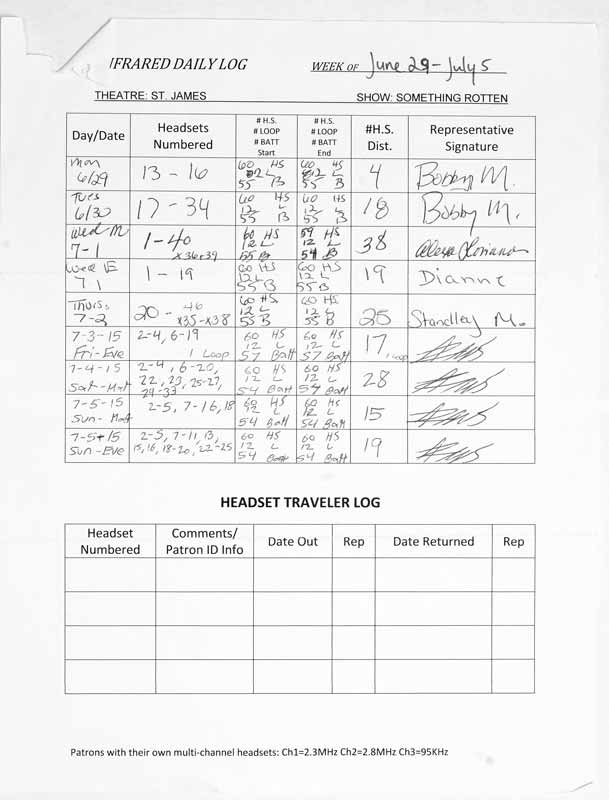 INFRARED DAILY LOG WEEK OF June 29 - July 5
THEATRE: ST. JAMES SHOW: SOMETHING ROTTEN
Day/Date Headsets Numbered # H.S. # LOOP # BATT Start # H.S. # LOOP # BATT End #H.S. Dist. Representative Signature
Mon 6/29 13 - 16 60 HS 12 L 55 B 60 HS 12 L 55 B 4 Bobby M.
Tues 6/30 17 - 34 60 HS 12 L 55 B 60 HS 12 L 55 B 18 Bobby M.
Wed M 7-1 1-40 x36+39 60 HS 12 L 55 B 59 HS 12 L 54 B 38
Wed E 7 1 1 - 19 60 HS 12 L 55 B 60 HS 12 L 55 B 19 Dianne
Thurs. 7-2 20 - 46 x35-x38 60 HS 12 L 55 B 60 HS 12 L 55 B 25 Standley M.
7-3-15 Fri-Eve 2-4, 6-19 1 Loop 60 HS 12 L 57 Batt 60 HS 12 L 57 Batt 17, 1 Loop
7-4-15 Sat-Mat 2-4, 6-20, 22, 23, 25-27, 29-33 60 HS 12 L 54 Batt 60 HS 12 L 54 Batt 28
7-5-15 Sun-Mat 2-5, 7-16, 18 60 HS 12 L 54 Batt 60 HS 12 L 54 Batt 15
7-5-15 Sun-Eve 2-5, 7-11, 13, 15, 16, 18-20, 22-25 60 HS 12 L 54 Batt 60 HS 12 L 54 Batt 19
HEADSET TRAVELER LOG
Headset Numbered Comments/ Patron ID Info Date Out Rep Date Returned Rep
Patrons with their own multi-channel headsets: Ch1=2.3MHz Ch2=2.8MHz Ch3=95KHz